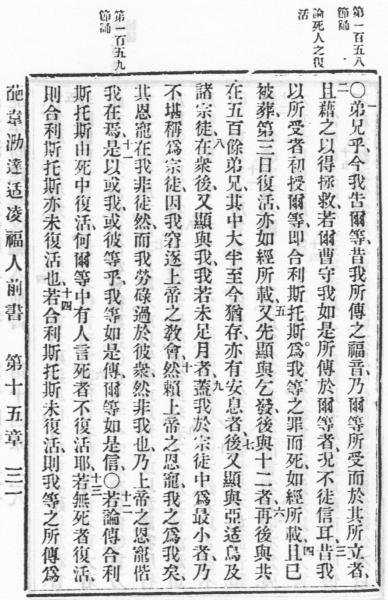 第一百五八
節誦
論死人之復
活
第一百五九
節誦
一○弟兄乎、今我告爾等、昔我所傳之福音、乃爾等所受而於其所立者、
二且藉之以得拯救、若爾曹守我如是所傳於爾等者、况不徒信耳、三昔我
以所受者、初授爾等、即合利斯托斯、爲我等之罪而死、如經所載、四且已
被葬、第三日復活、亦如經所載、五又先顯與乞發、後與十二者、六再後與共
在五百餘弟兄、其中大半至今猶存、亦有安息者、七後又顯與亞适烏、及
諸宗徒、八在衆後、又顯與我、我若未足月者、九蓋我於宗徒中爲最小者、乃
不堪稱爲宗徒、因我窘逐上帝之教會、十然賴上帝之恩寵、我之爲我矣、
其恩寵在我、非徒然、而我勞碌過於彼衆、然非我也、乃上帝之恩寵偕
我在焉、十一是以或我、或彼等乎、我等如是傳、爾等如是信、○十二若論傳合利
斯托斯由死中復活、何爾等中有人言死者不復活耶、十三若無死者復活、
則合利斯托斯亦未復活也、十四若合利斯托斯未復活、則我等之所傳爲
葩韋泐達适凌福人前書 第十五章 三一